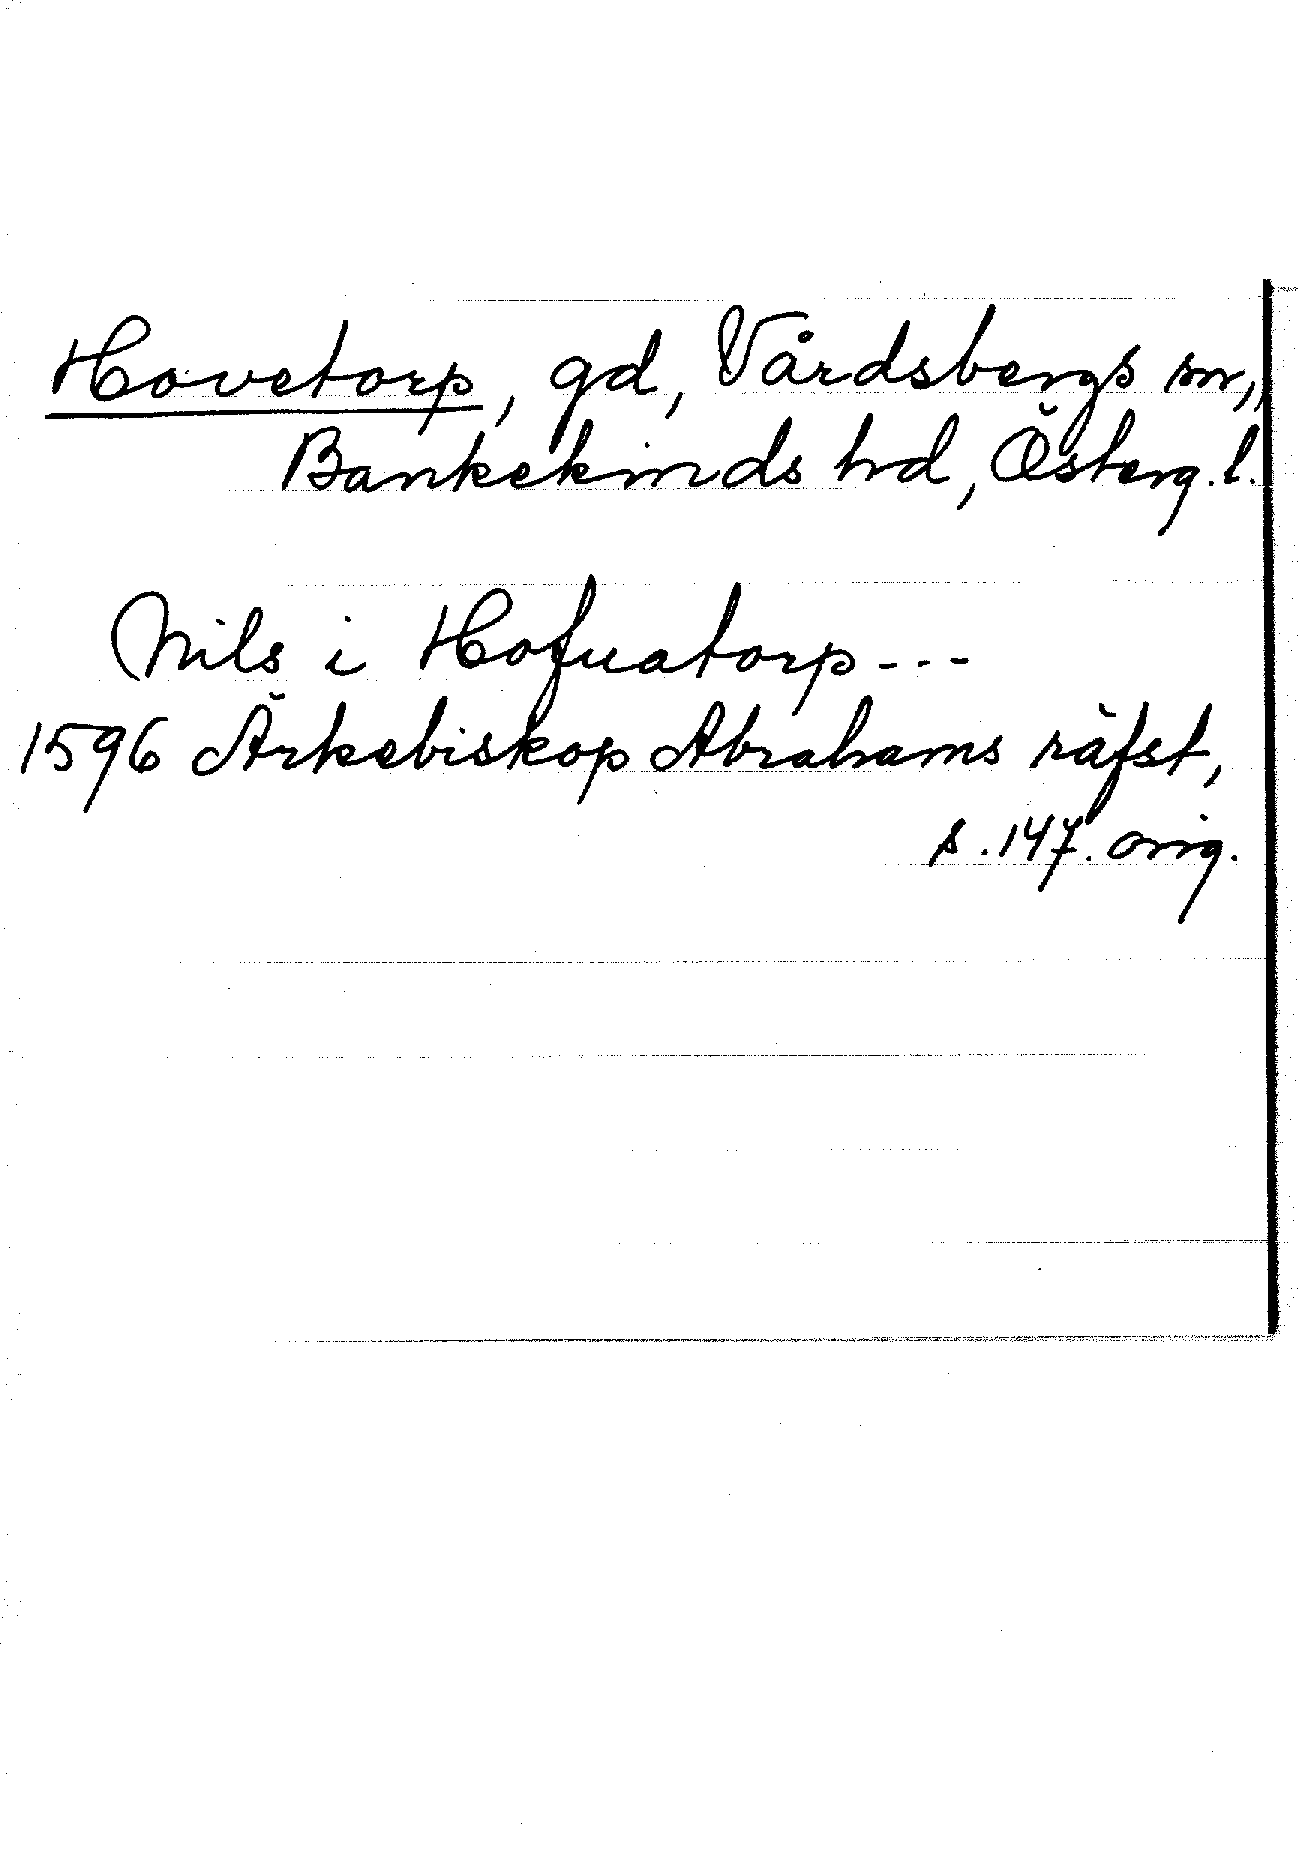 Hovetorp, gd, Vårdsbergs sn,
Bankekinds hd, Österg. l.
Nils i Hofuatorp---
1596 Ärkebiskop Abrahams räfst,
s. 147. orig.